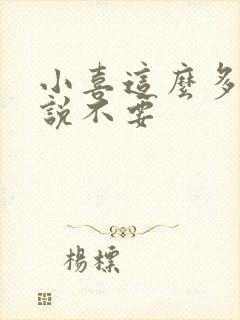 小喜這麼多
說不要
楊標